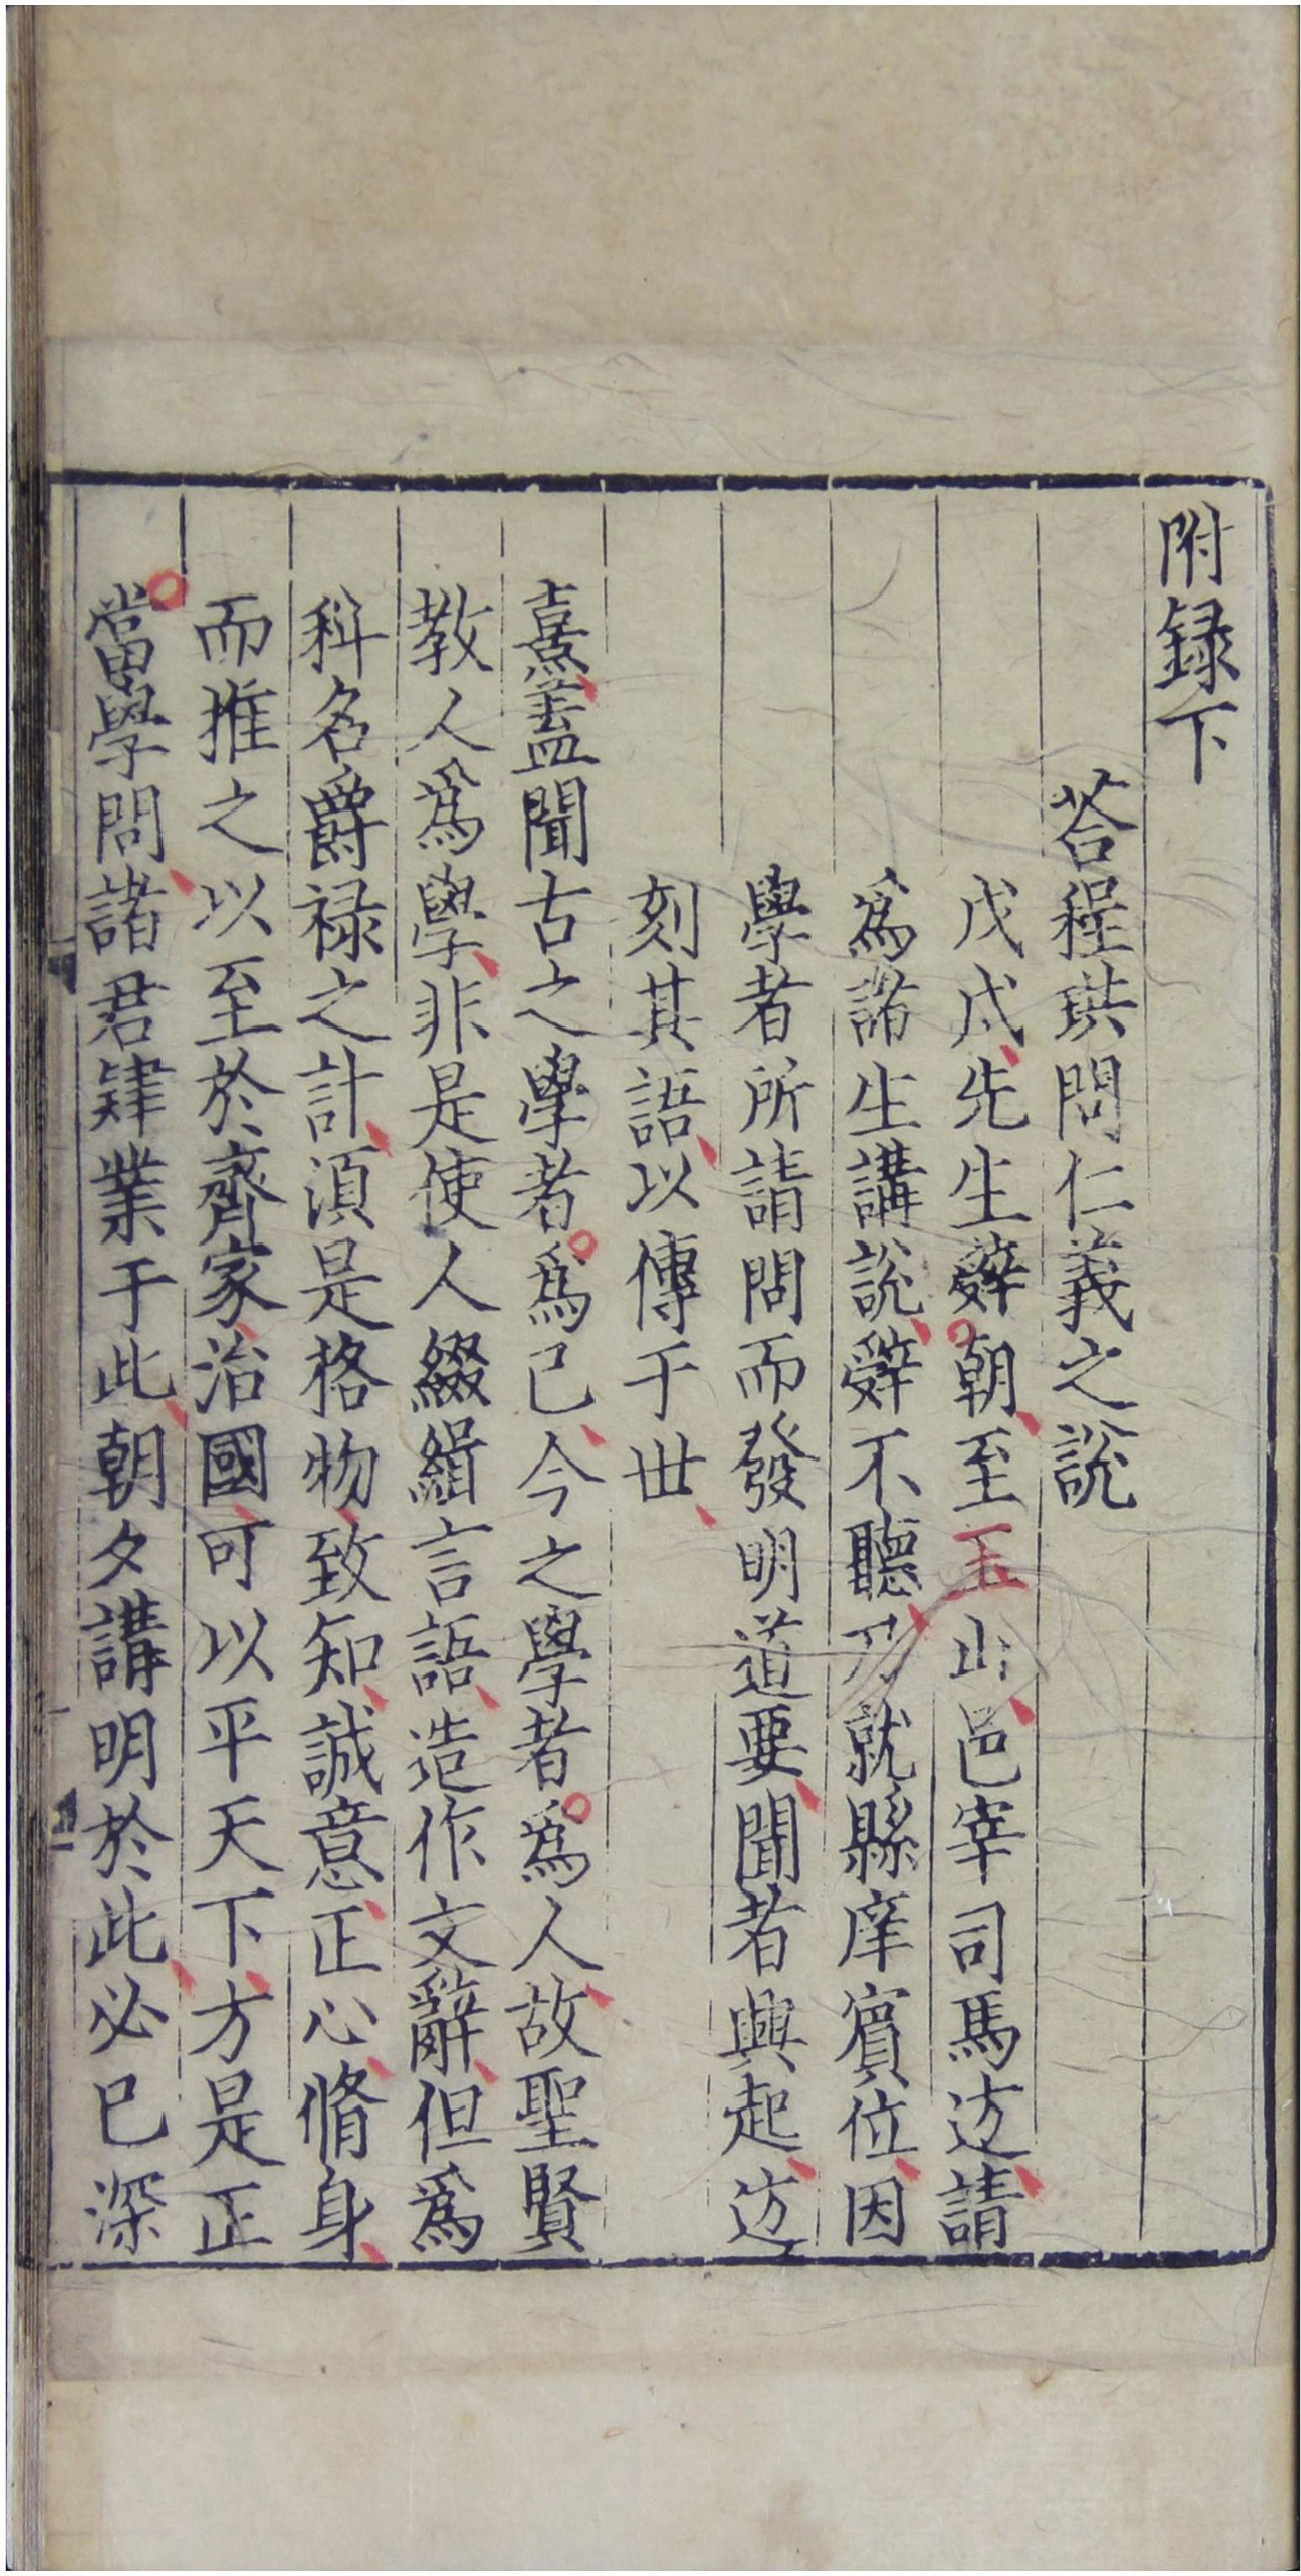 附録下
荅程珙問仁義之說
戊戌先生辤朝至玉山邑宰司馬迈請
爲諸生講說辤不聽乃就縣庠賔位因
學者所請問而發明道要聞者興起迈
刻其語以傳于世
熹葢聞古之學者爲已今之學者爲人故聖賢
教人爲學非是使人綴緝言語造作文辭但爲
科名爵禄之計湏是格物致知誠意正心脩身
而推之以至於齊家治國可以平天下方是正
當學問諸君肄業于此朝夕講明於此必已深